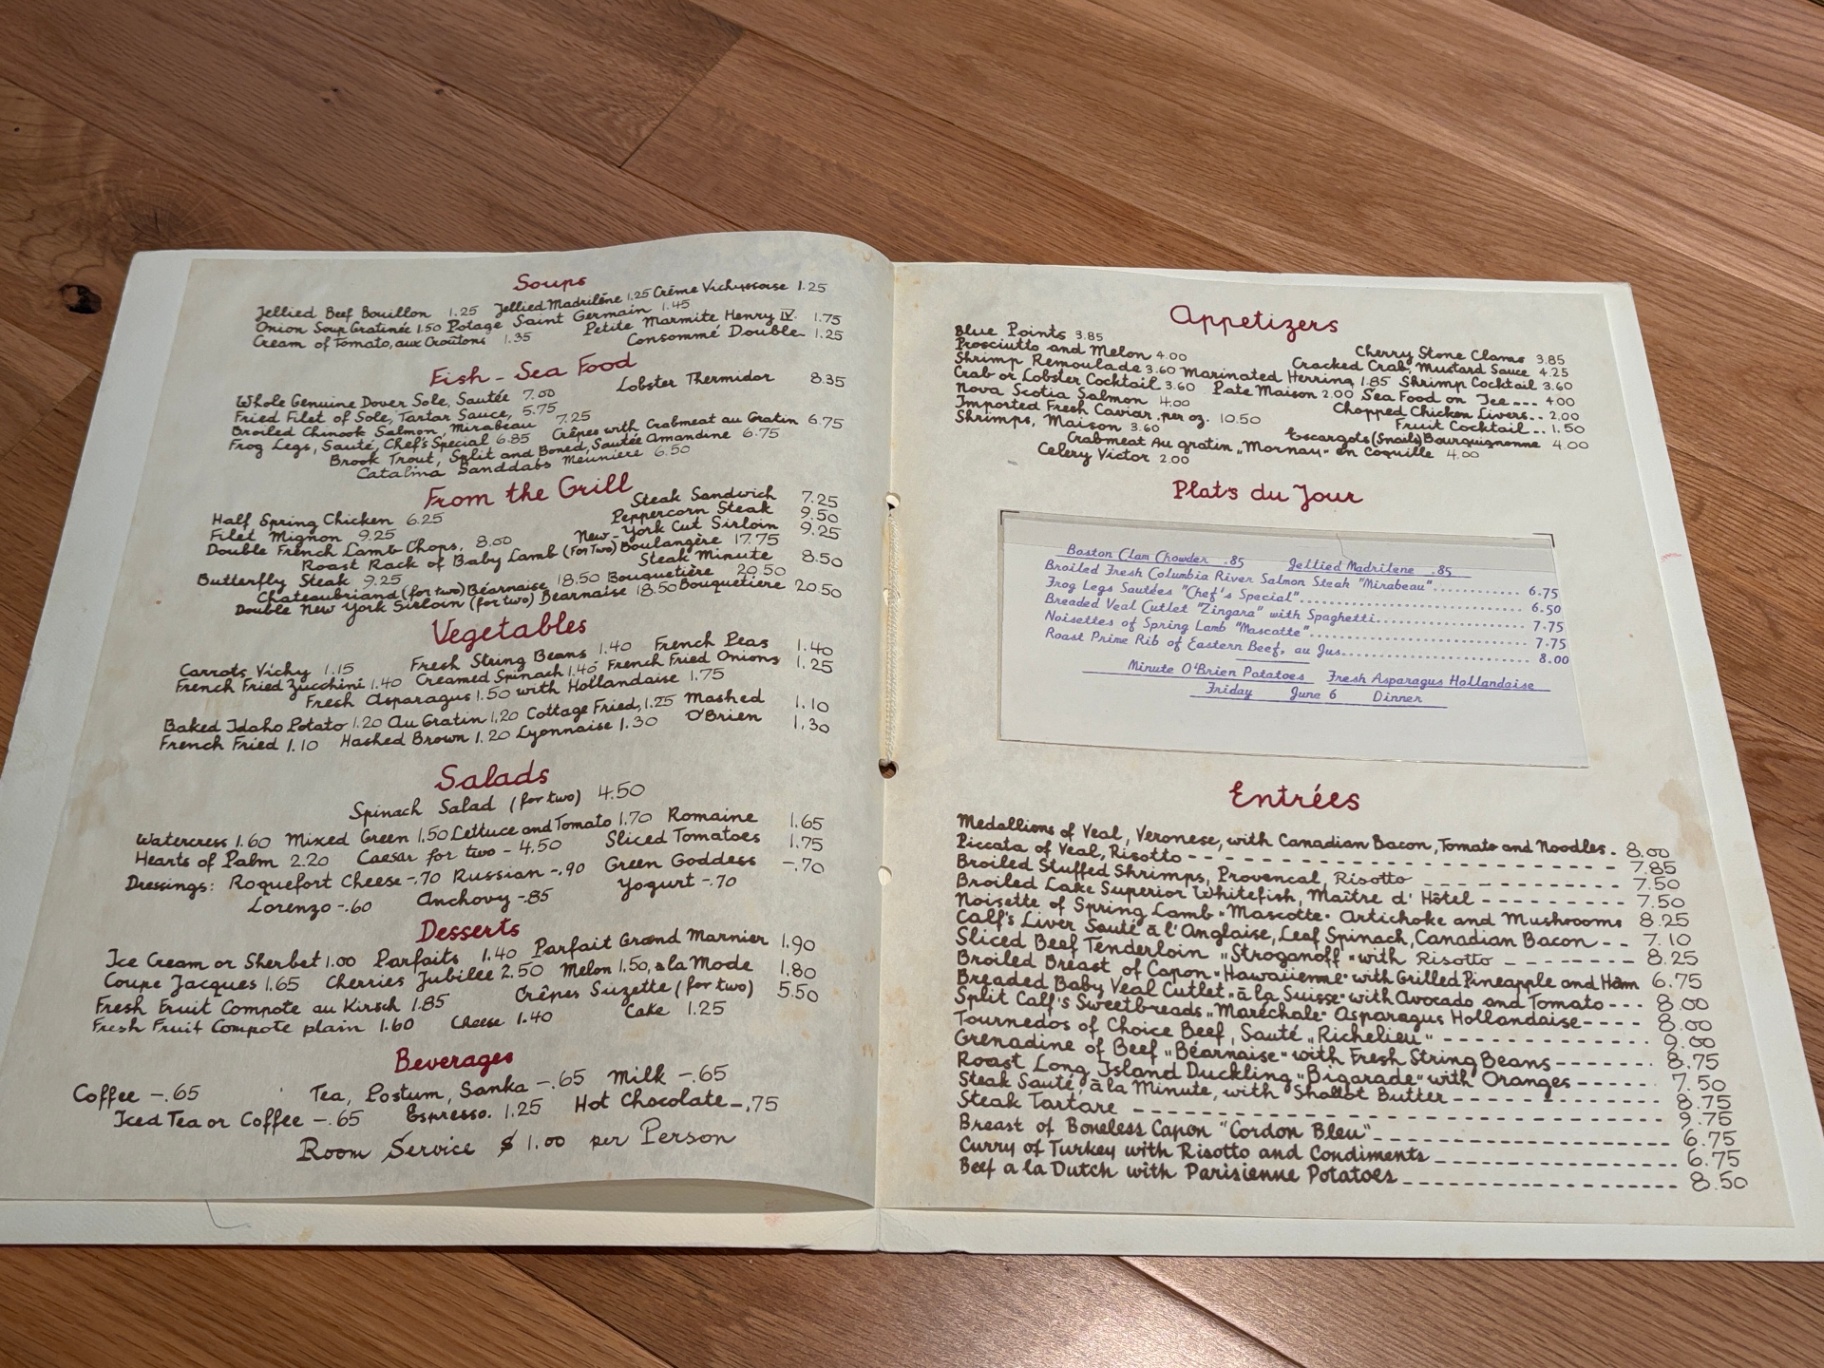 Soups
Jellied Beef Bouillon 1.25 Jellied Madrilène 1.25 Crême Vichyssoise 1.25
Onion Soup Gratinée 1.50 Potage Saint Germain 1.45
Cream of Tomato, aux Croûtons 1.35 Petite Marmite Henry IV. 1.75
Consommé Double 1.25
Fish - Sea Food
Whole Genuine Dover Sole, Sautée 7.00 Lobster Thermidor 8.35
Fried Filet of Sole, Tartar Sauce, 5.75
Broiled Chinook Salmon, Mirabeau 7.25
Frog Legs, Sauté, Chef's Special 6.85 Crêpes with Crabmeat au Gratin 6.75
Brook Trout, Split and Boned, Sautée Amandine 6.75
Catalina Sanddabs Meunière 6.50
From the Grill
Half Spring Chicken 6.25 Steak Sandwich 7.25
Filet Mignon 9.25 Peppercorn Steak 9.50
Double French Lamb Chops, 8.00 New-York Cut Sirloin 9.25
Roast Rack of Baby Lamb (for Two) Boulangère 17.75
Butterfly Steak 9.25 Steak Minute 8.50
Chateaubriand (for two) Béarnaise 18.50 Bouquetière 20.50
Double New York Sirloin (for two) Béarnaise 18.50 Bouquetière 20.50
Vegetables
Carrots Vichy 1.15 Fresh String Beans 1.40 French Peas 1.40
French Fried Zucchini 1.40 Creamed Spinach 1.40 French Fried Onions 1.25
Fresh Asparagus 1.50 with Hollandaise 1.75
Baked Idaho Potato 1.20 Au Gratin 1.20 Cottage Fried, 1.25 Mashed 1.10
French Fried 1.10 Hashed Brown 1.20 Lyonnaise 1.30 O'Brien 1.30
Salads
Spinach Salad (for two) 4.50
Watercress 1.60 Mixed Green 1.50 Lettuce and Tomato 1.70 Romaine 1.65
Hearts of Palm 2.20 Caesar for two - 4.50 Sliced Tomatoes 1.75
Dressings: Roquefort Cheese -.70 Russian -.90 Green Goddess -.70
Lorenzo -.60 Anchovy -.85 Yogurt -.70
Desserts
Ice Cream or Sherbet 1.00 Parfaits 1.40 Parfait Grand Marnier 1.90
Coupe Jacques 1.65 Cherries Jubilee 2.50 Melon 1.50, a la Mode 1.80
Fresh Fruit Compote au Kirsch 1.85 Crêpes Suzette (for two) 5.50
Fresh Fruit Compote plain 1.60 Cheese 1.40 Cake 1.25
Beverages
Coffee -.65 Tea, Postum, Sanka -.65 Milk -.65
Iced Tea or Coffee -.65 Espresso. 1.25 Hot Chocolate -.75
Room Service $ 1.00 per Person
Appetizers
Blue Points 3.85 Cherry Stone Clams 3.85
Prosciutto and Melon 4.00 Cracked Crab, Mustard Sauce 4.25
Shrimp Remoulade 3.60 Marinated Herring 1.85 Shrimp Cocktail 3.60
Crab or Lobster Cocktail 3.60 Pate Maison 2.00 Sea Food on Ice --- 4.00
Nova Scotia Salmon 4.00 Chopped Chicken Livers -- 2.00
Imported Fresh Caviar, per oz. 10.50 Fruit Cocktail -- 1.50
Shrimps, Maison 3.60 Escargots (Snails) Bourguignonne 4.00
Crabmeat Au gratin „Mornay" en Coquille 4.00
Celery Victor 2.00
Plats du Jour
Boston Clam Chowder .85 Jellied Madrilene .85
Broiled Fresh Columbia River Salmon Steak "Mirabeau" 6.75
Frog Legs Sautées "Chef's Special" 6.50
Breaded Veal Cutlet "Zingara" with Spaghetti 7.75
Noisettes of Spring Lamb "Mascotte" 7.75
Roast Prime Rib of Eastern Beef, au Jus 8.00
Minute O'Brien Potatoes Fresh Asparagus Hollandaise
Friday June 6 Dinner
Entrées
Medallions of Veal, Veronese, with Canadian Bacon, Tomato and Noodles. 8.00
Piccata of Veal, Risotto 7.85
Broiled Stuffed Shrimps, Provencal, Risotto 7.50
Broiled Lake Superior Whitefish, Maître d' Hôtel 7.50
Noisette of Spring Lamb "Mascotte" Artichoke and Mushrooms 8.25
Calf's Liver Sauté à l'Anglaise, Leaf Spinach, Canadian Bacon -- 7.10
Sliced Beef Tenderloin „Stroganoff" with Risotto 8.25
Broiled Breast of Capon "Hawaiienne" with Grilled Pineapple and Ham 6.75
Breaded Baby Veal Cutlet "à la Suisse" with Avocado and Tomato --- 8.00
Split Calf's Sweetbreads „Maréchale" Asparagus Hollandaise ---- 8.00
Tournedos of Choice Beef, Sauté „Richelieu" 9.00
Grenadine of Beef „Béarnaise" with Fresh String Beans 8.75
Roast Long Island Duckling „Bigarade" with Oranges 7.50
Steak Sauté, à la Minute, with Shallot Butter 8.75
Steak Tartare 9.75
Breast of Boneless Capon "Cordon Bleu" 6.75
Curry of Turkey with Risotto and Condiments 6.75
Beef a la Dutch with Parisienne Potatoes 8.50